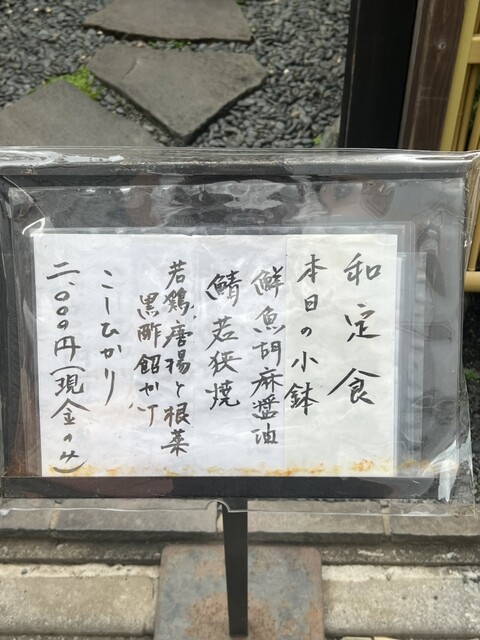 和定食
本日の小鉢
鮮魚胡麻醤油
鯖若狭焼
若鶏唐揚と根菜
黒酢餡かけ
こしひかり
二、〇〇〇円(現金のみ)